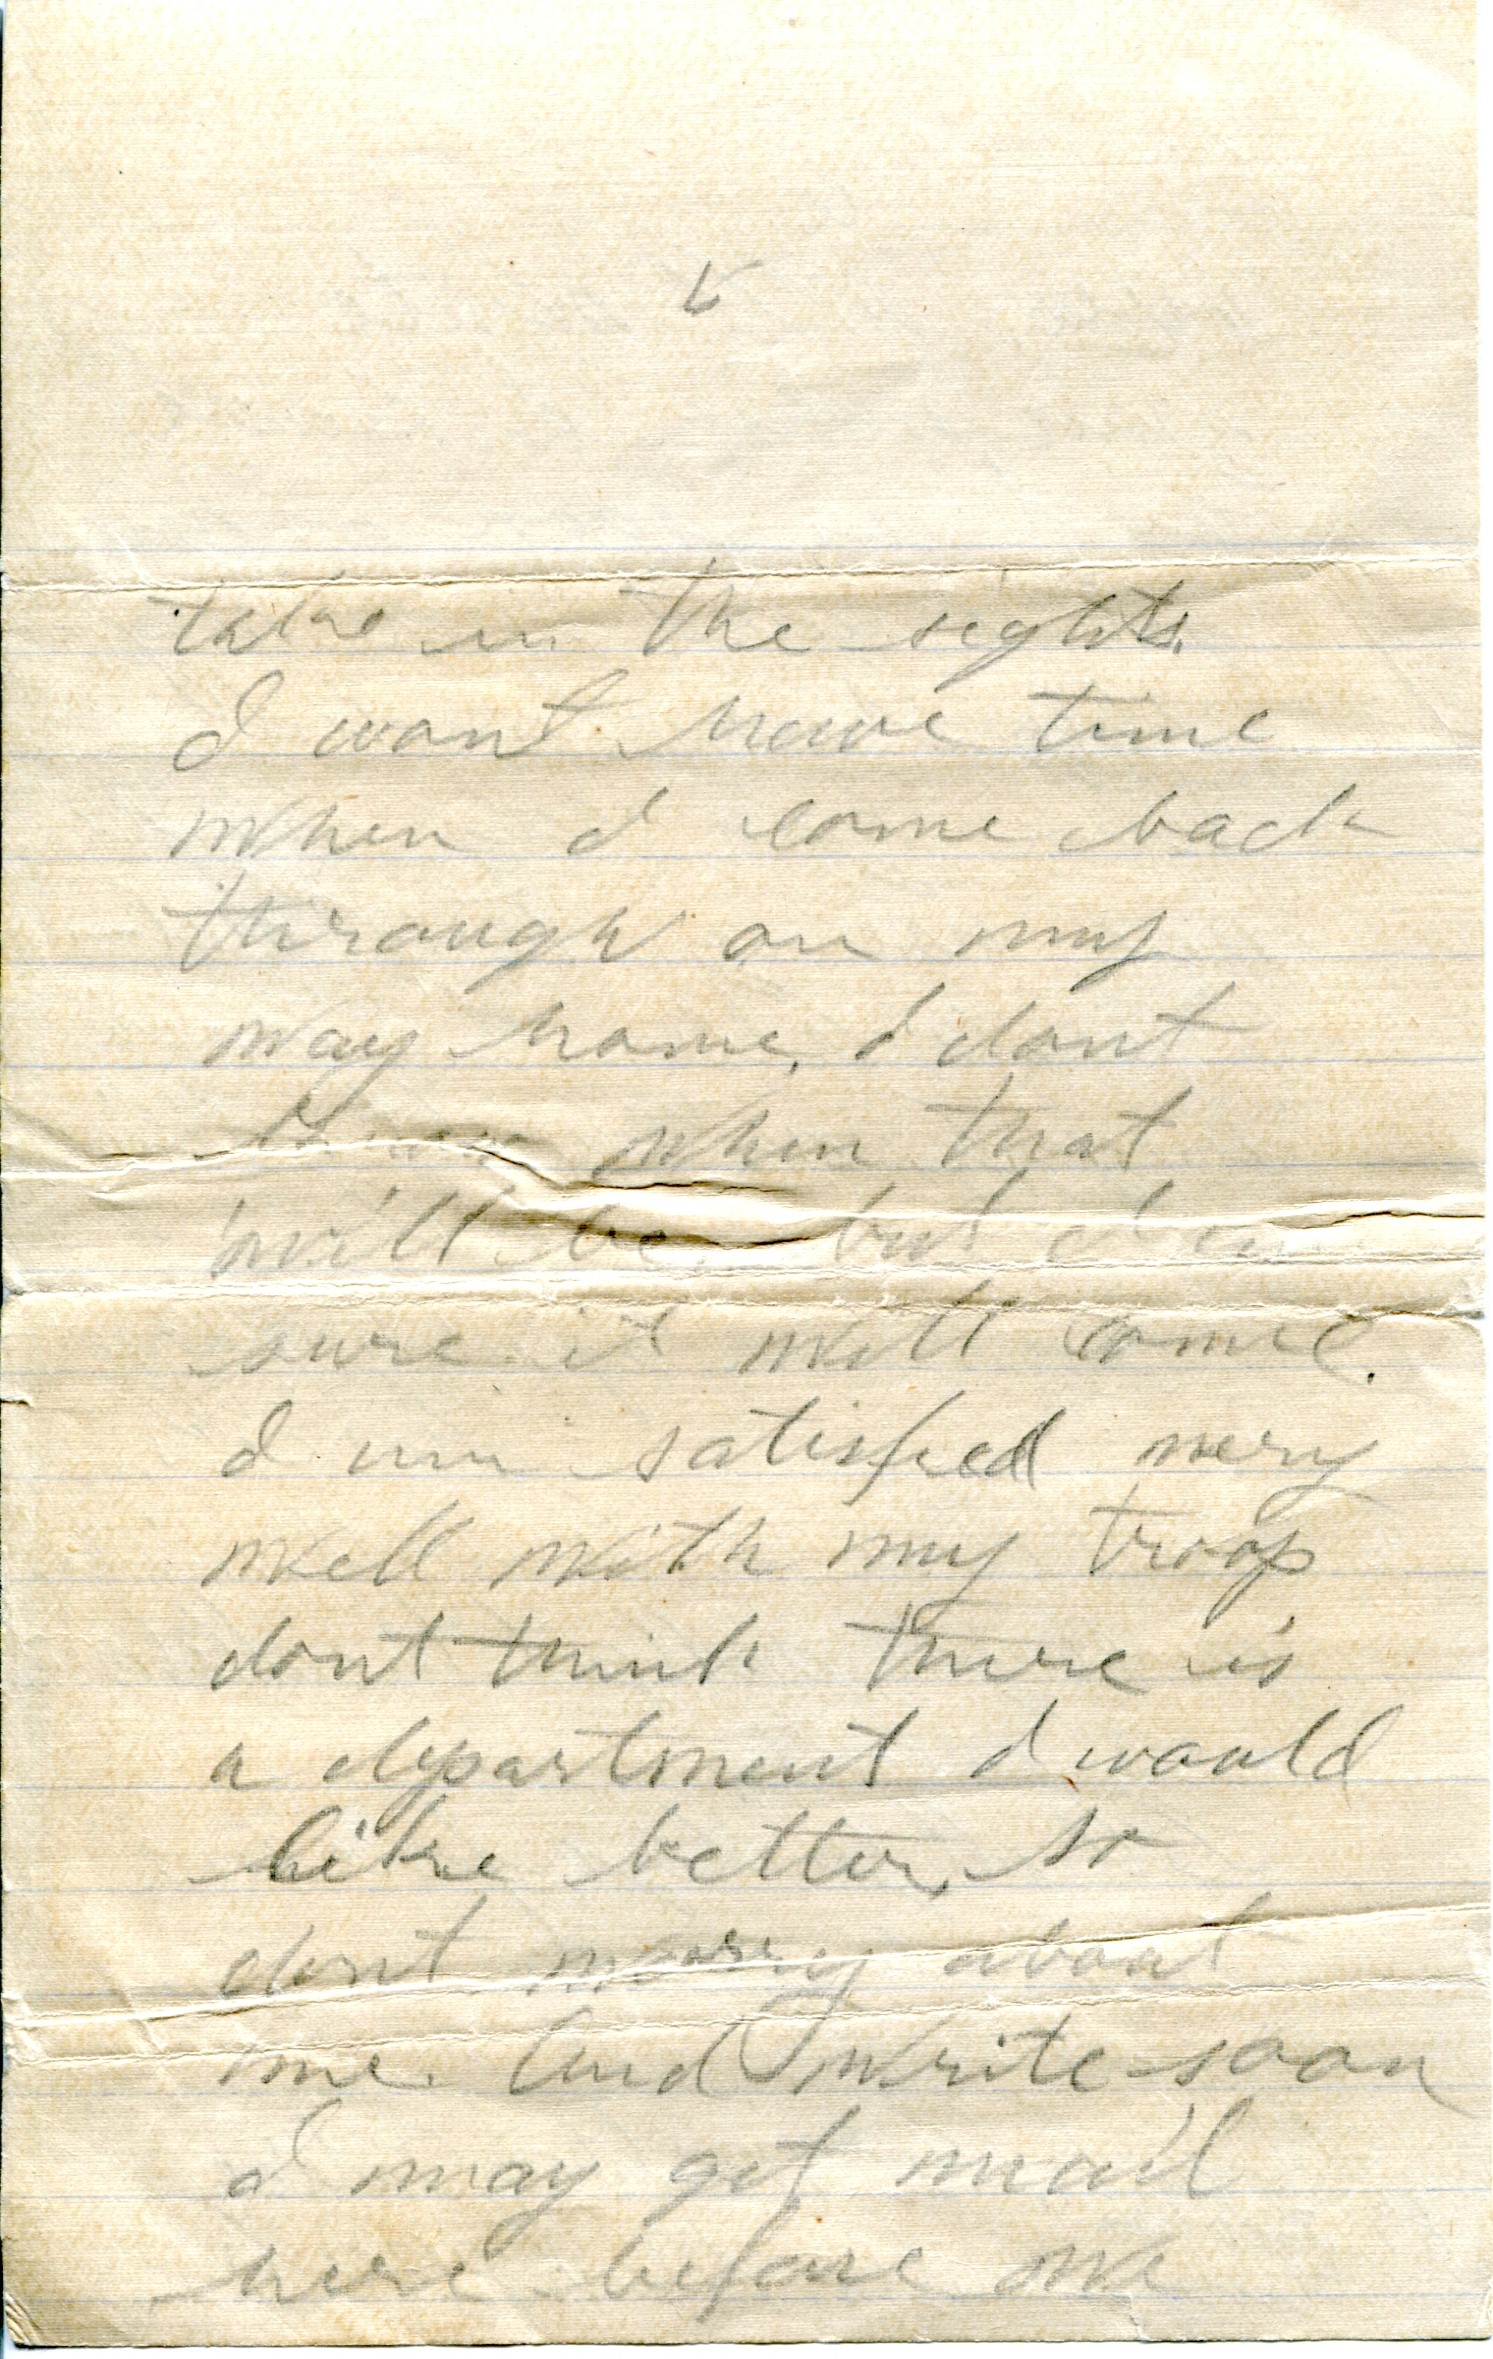 take in the sights.
I wont have time
when I come back
through on my
way home. I dont
know when that
will be but I am
sure it will come.
I am satisfied very
well with my troop
dont think there is
a department I would
like better, so
dont worry about
me. And write soon
I may get mail
here before we